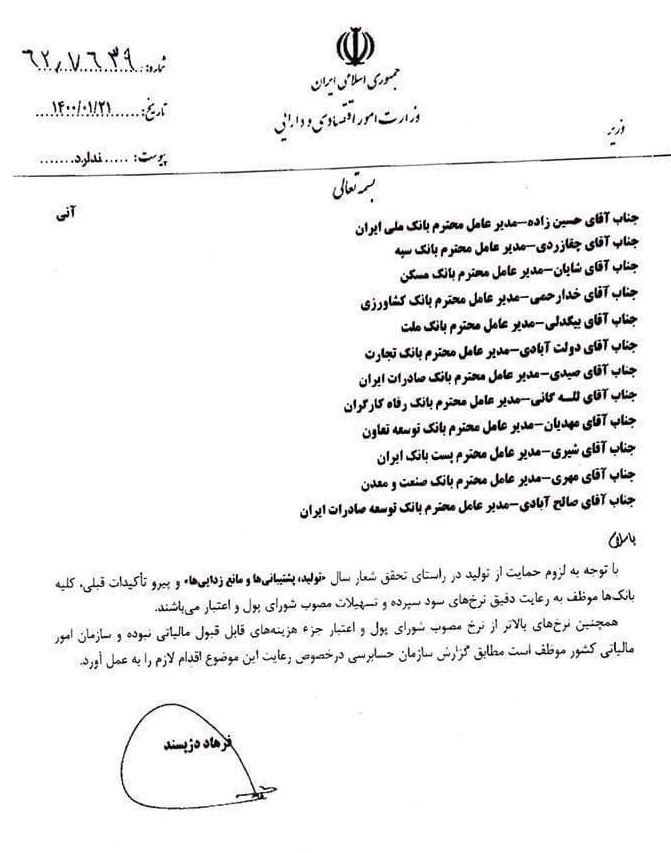 شماره: ۶۲٫۷۶۳۹
تاریخ: ۱۴۰۰/۰۱/۲۱
پیوست: ندارد
جمهوری اسلامی ایران
وزارت امور اقتصادی و دارایی
وزیر
بسمه تعالی
آنی
جناب آقای حسین زاده–مدیر عامل محترم بانک ملی ایران
جناب آقای چقازردی–مدیر عامل محترم بانک سپه
جناب آقای شایان–مدیر عامل محترم بانک مسکن
جناب آقای خدارحمی–مدیر عامل محترم بانک کشاورزی
جناب آقای بیگدلی–مدیر عامل محترم بانک ملت
جناب آقای دولت آبادی–مدیر عامل محترم بانک تجارت
جناب آقای صیدی–مدیر عامل محترم بانک صادرات ایران
جناب آقای لله گانی–مدیر عامل محترم بانک رفاه کارگران
جناب آقای مهدیان–مدیر عامل محترم بانک توسعه تعاون
جناب آقای شیری–مدیر عامل محترم پست بانک ایران
جناب آقای مهری–مدیر عامل محترم بانک صنعت و معدن
جناب آقای صالح آبادی–مدیر عامل محترم بانک توسعه صادرات ایران
با سلام
با توجه به لزوم حمایت از تولید در راستای تحقق شعار سال «تولید، پشتیبانی‌ها و مانع زدایی‌ها» و پیرو تأکیدات قبلی، کلیه
بانک‌ها موظف به رعایت دقیق نرخ‌های سود سپرده و تسهیلات مصوب شورای پول و اعتبار می‌باشند.
همچنین نرخ‌های بالاتر از نرخ مصوب شورای پول و اعتبار جزء هزینه‌های قابل قبول مالیاتی نبوده و سازمان امور
مالیاتی کشور موظف است مطابق گزارش سازمان حسابرسی درخصوص رعایت این موضوع اقدام لازم را به عمل آورد.
فرهاد دژپسند